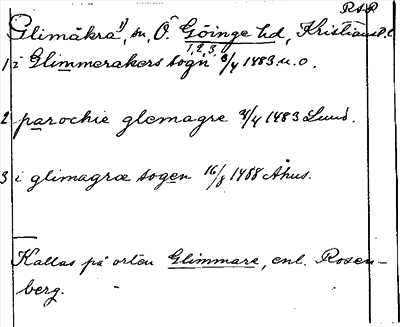 RSR
Glimåkra 1), sn, Ö. Göinge hd, Kristianst. l.
1, 2, 3,
1 i Glimmerakers sogn 3/4 1483 u. o.
2 parochie glemagre 4/4 1483 Lund.
3 i glimagræ sogen 16/8 1488 Åhus.
Kallas på orten Glimmare, enl. Rosen-
berg.